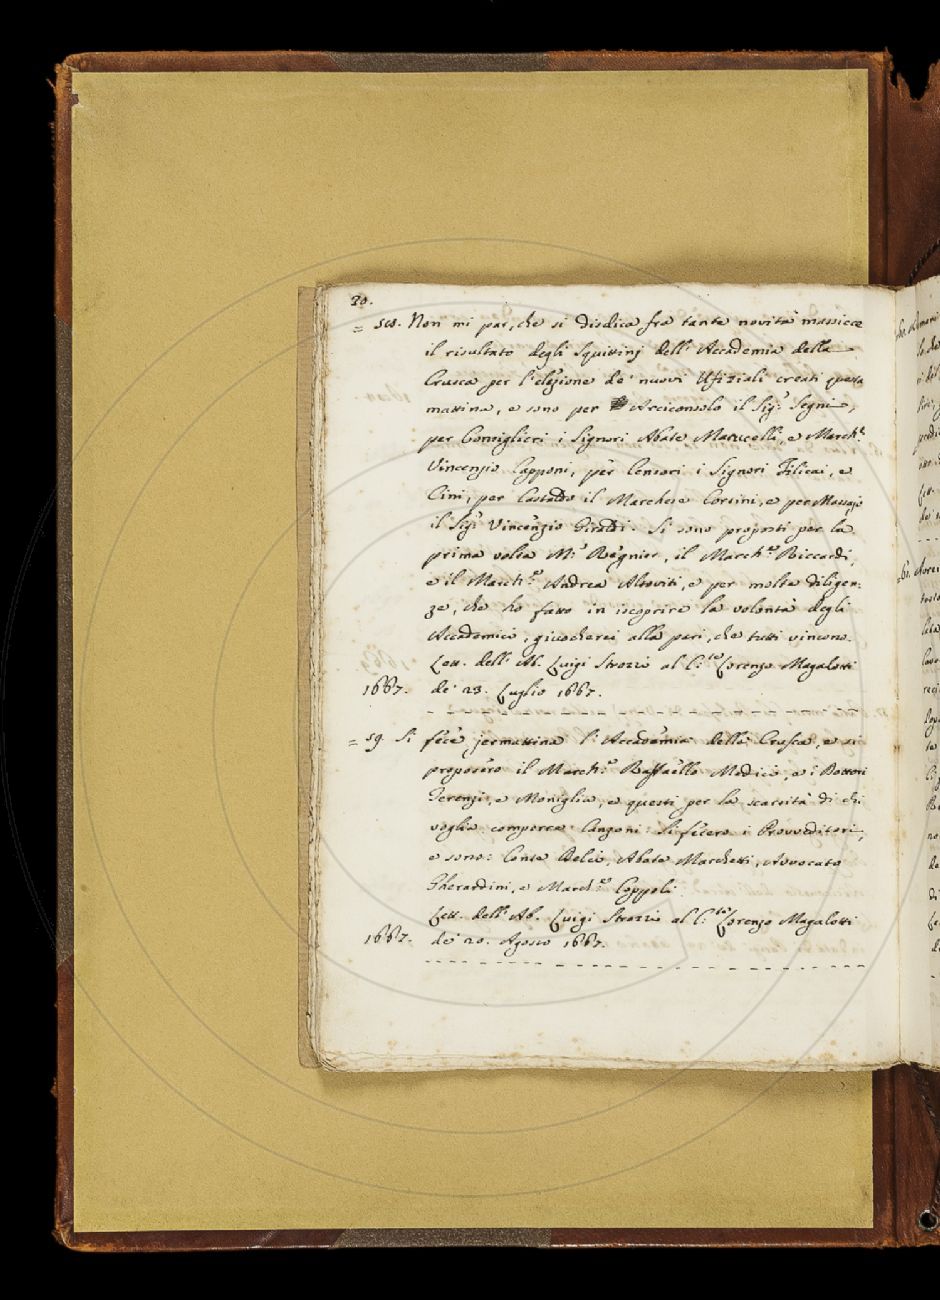 20.
= Non mi par, che si disdica fra tante novità massicce
il risultato degli Squittinj dell'Accademia della
Crusca per l'elezione de' nuovi Ufiziali creati questa
mattina, e sono per Arciconsolo il Sig.r Segni,
per Consiglieri i Signori Abate Marucelli, e March.e
Vincenzio Capponi, per Censori i Signori Filicai, e
Cini, per Castaldo il Marchese Corsini, e per Massajo
il Sig.r Vincenzio Giraldi. Si sono proposti per la
prima volta M.r Regnier, il March.e Riccardi,
e il March.e Andrea Altoviti, e per molte diligen:
ze, che ho fatto in iscoprire la volontà degli
Accademici, giuocherei alla pari, che tutti vincono.
Lett. dell'Ab. Luigi Strozzi al C.te Lorenzo Magalotti
1667. de' 23. Luglio 1667.
= 59 Si fece jermattina l'Accademia della Crusca, e si
proposero il March.e Raffaello Medici, e i Dottori
Terenzi, e Moniglia, e questi per la scarsità di chi
voglia comporre Canzoni: Si fecero i Provveditori,
e sono: Conte Abate Marchetti, Avvocato
Gherardini, e March.e Coppoli.
Lett. dell'Ab. Luigi Strozzi al C.te Lorenzo Magalotti
1667. de' 20. Agosto 1667.